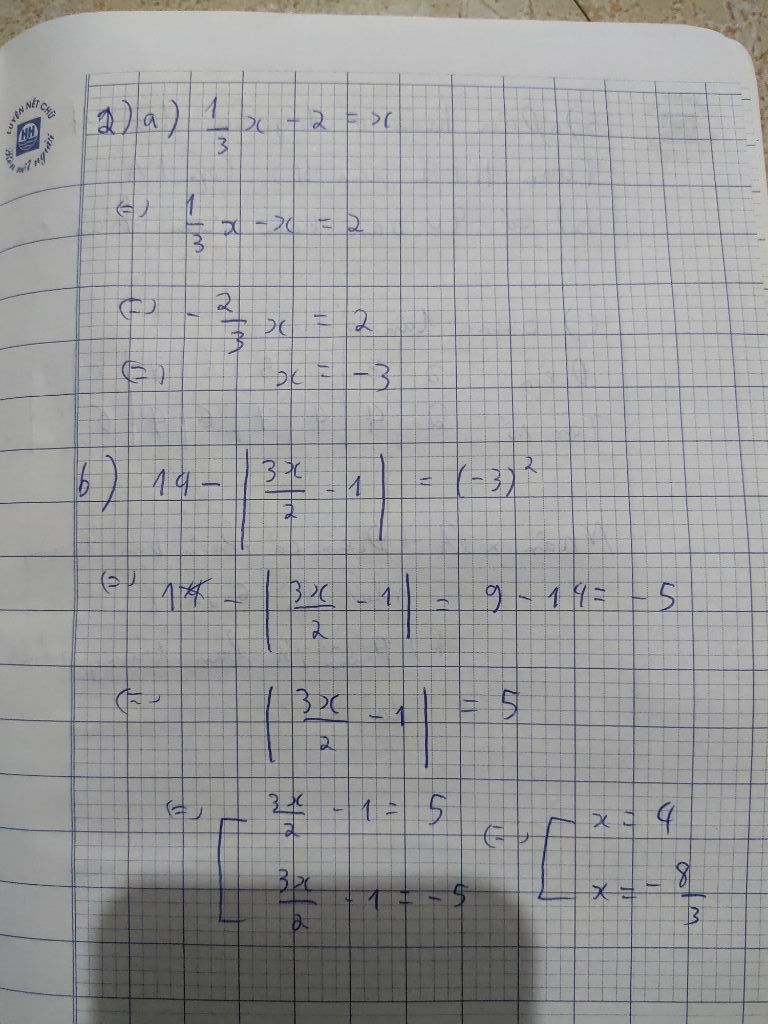 LUYỆN NÉT CHỮ
HH
2) a) 1/3 x - 2 = x
(=) 1/3 x - x = 2
(=) - 2/3 x = 2
(=) x = -3
b) 14 - | 3x/2 - 1 | = (-3)²
(=) 14 - | 3x/2 - 1 | = 9 - 14 = -5
(=) | 3x/2 - 1 | = 5
(=) [ 3x/2 - 1 = 5 (=) [ x = 4
3x/2 - 1 = -5 x = - 8/3